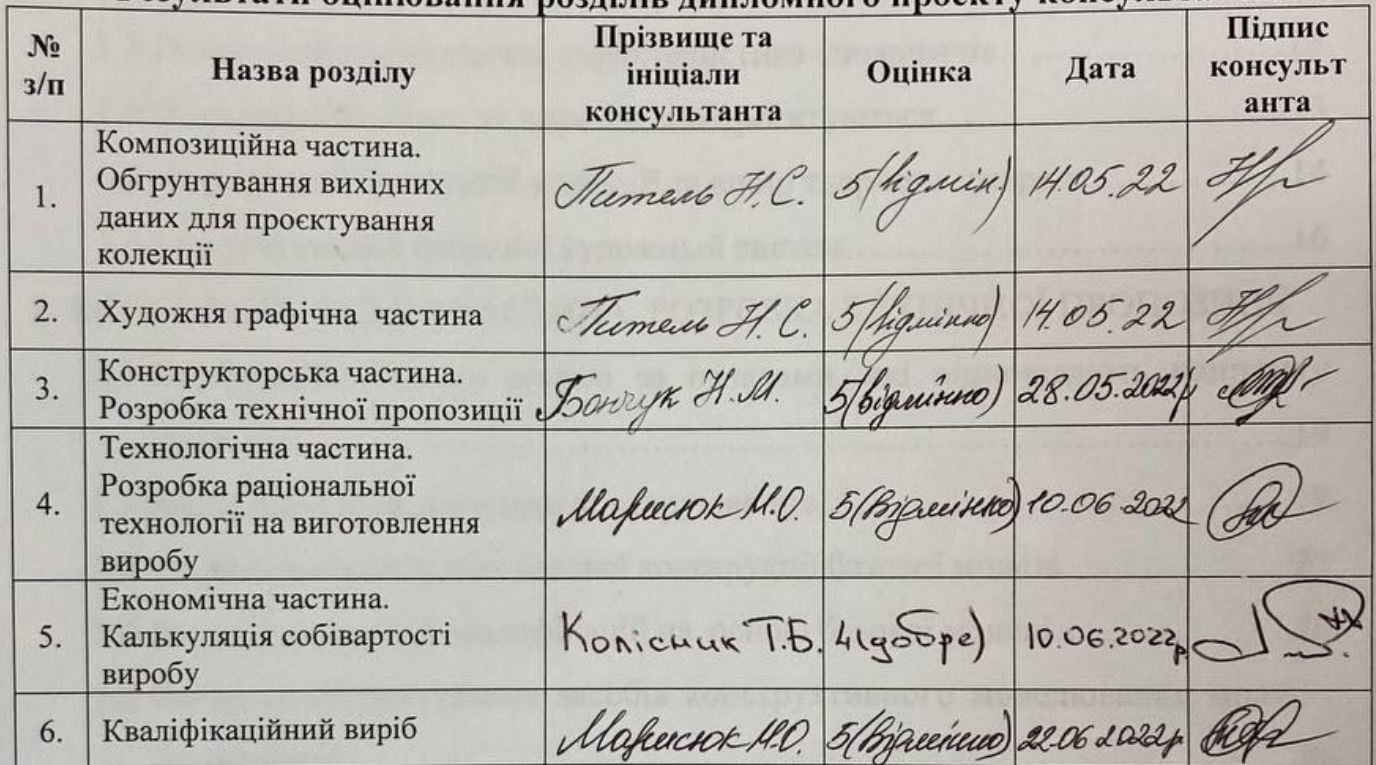 Результати оцінювання розділів дипломного проєкту
№ з/п Назва розділу Прізвище та ініціали консультанта Оцінка Дата Підпис консульт анта
1. Композиційна частина. Обгрунтування вихідних даних для проєктування колекції Питель Н.С. 5(відмін.) 14.05.22
2. Художня графічна частина Питель Н.С. 5(відмінно) 14.05.22
3. Конструкторська частина. Розробка технічної пропозиції Бончук Н.М. 5(відмінно) 28.05.2022р
4. Технологічна частина. Розробка раціональної технології на виготовлення виробу Марисюк М.О. 5(Відмінно) 10.06.2022
5. Економічна частина. Калькуляція собівартості виробу Колісник Т.Б. 4(добре) 10.06.2022р.
6. Кваліфікаційний виріб Марисюк М.О. 5(Відмінно) 22.06.2022р